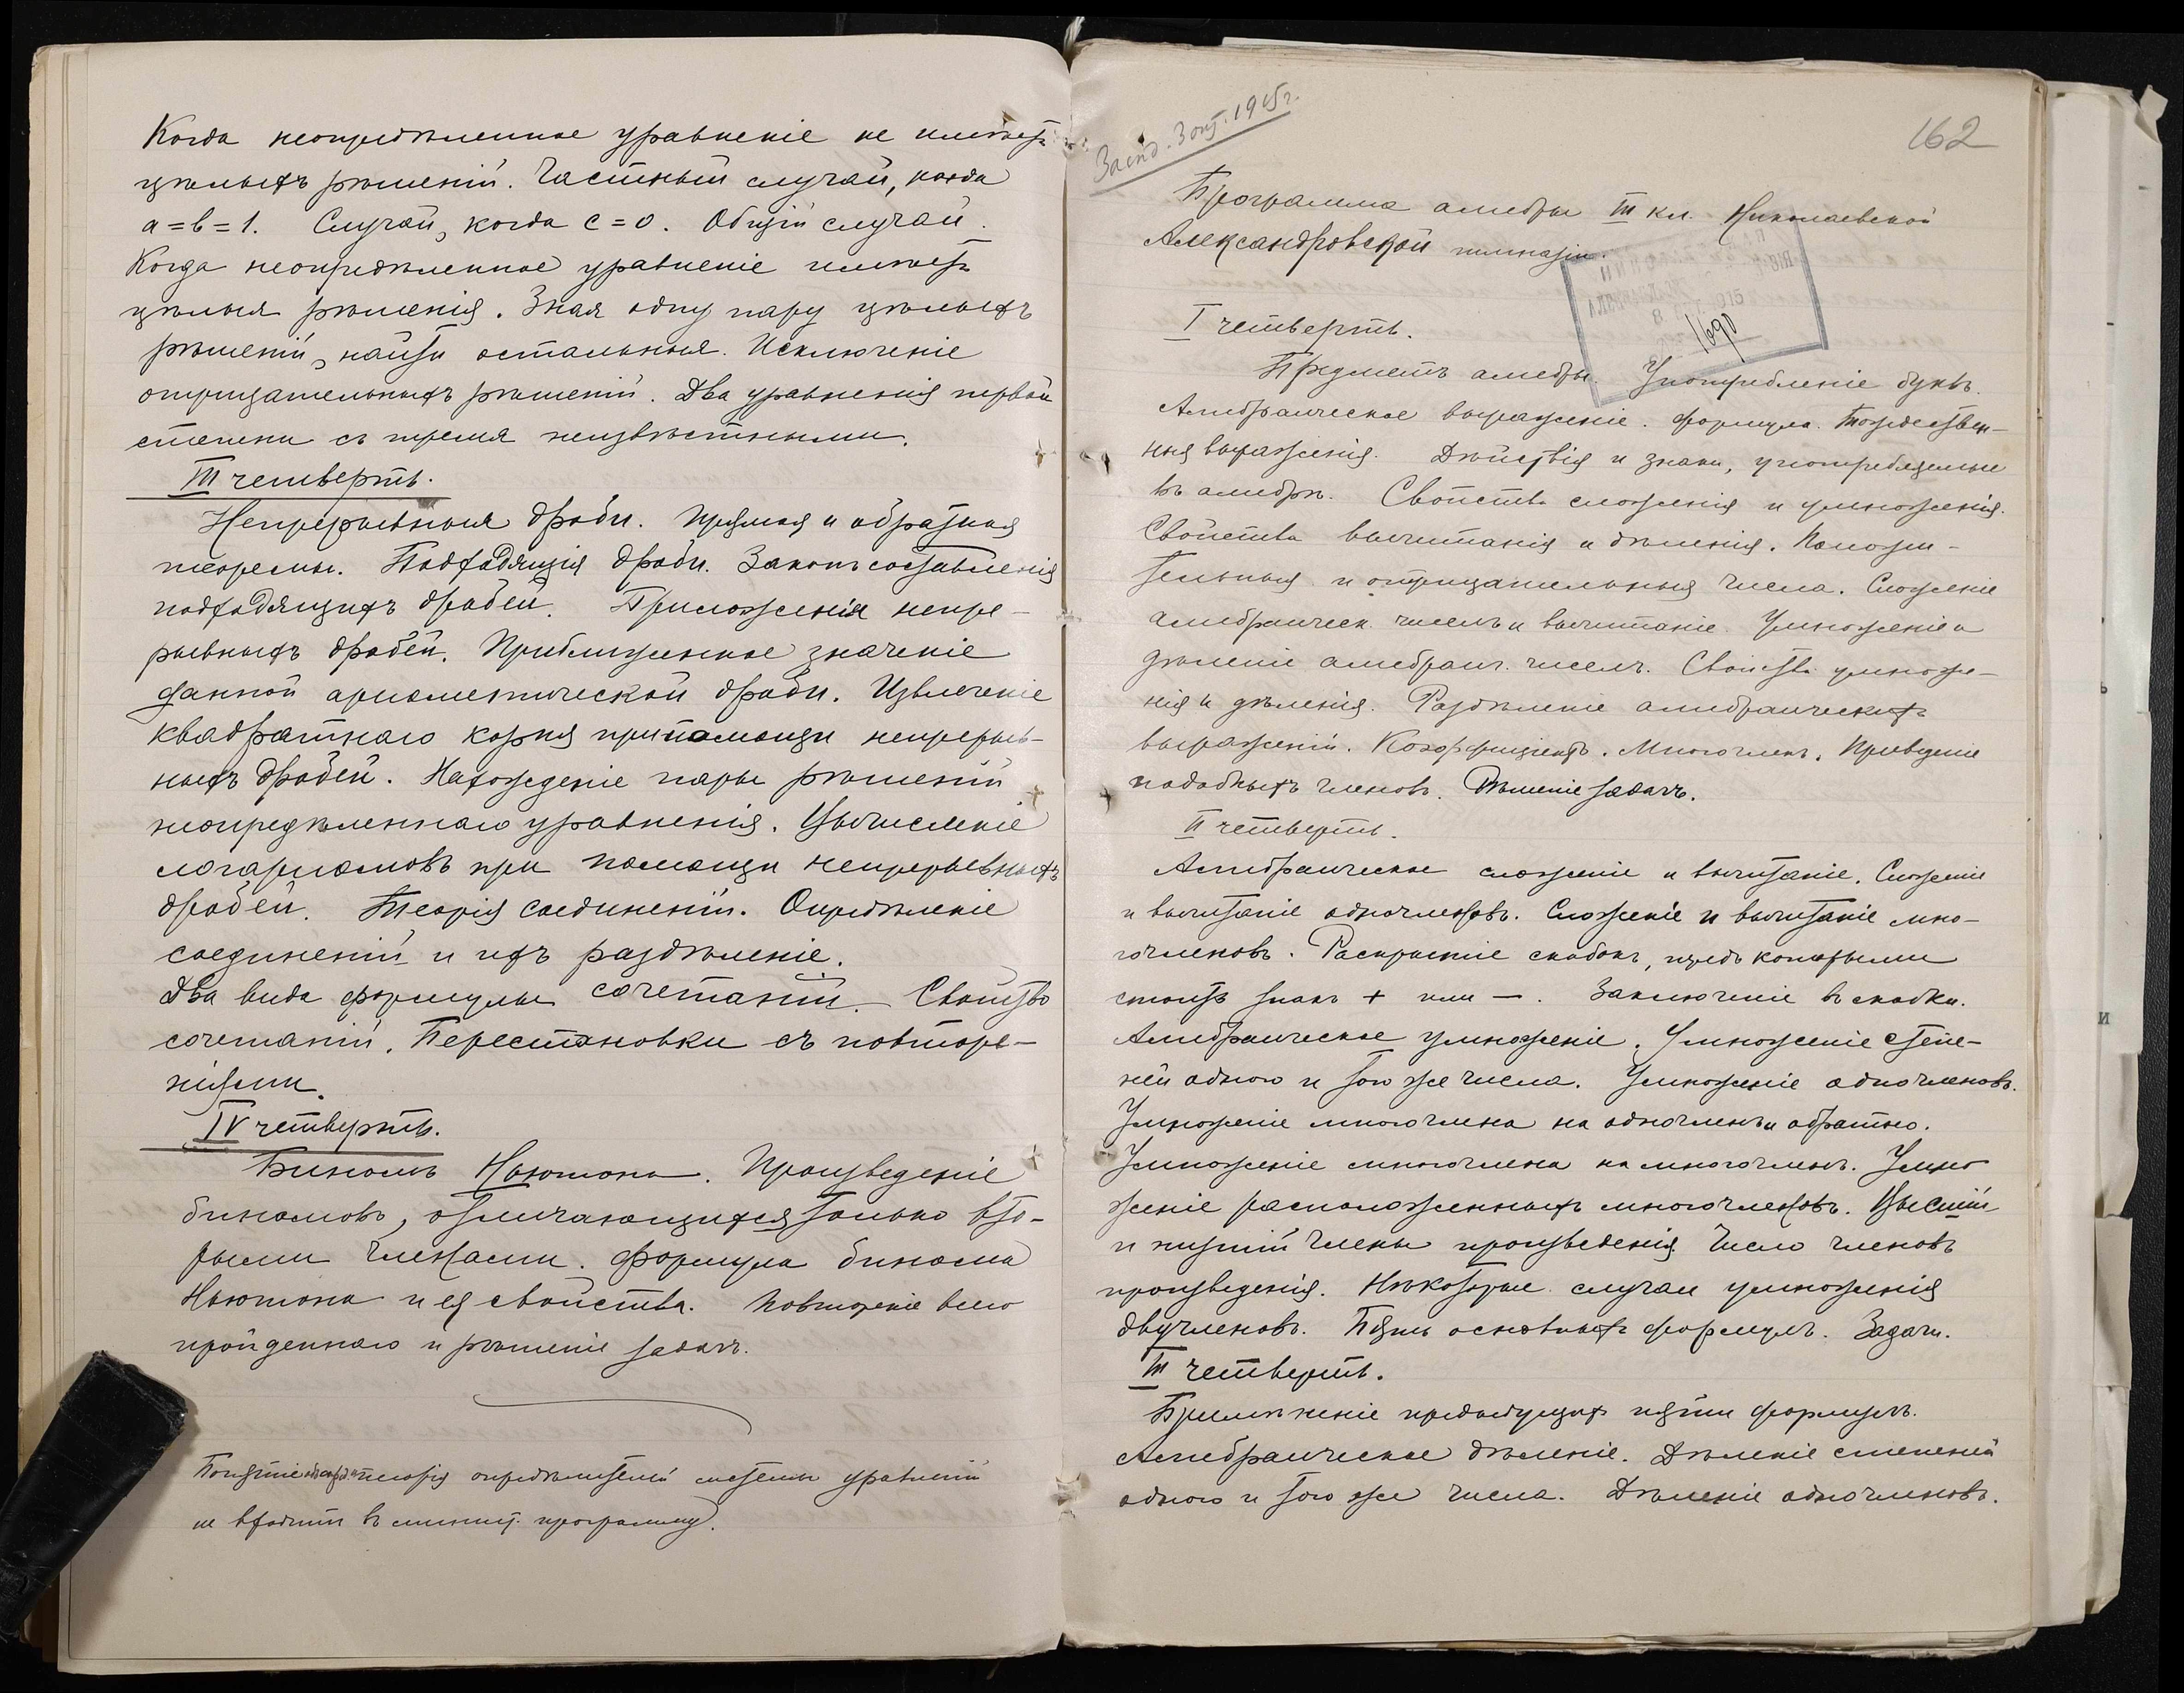 Когда неопредѣленное уравненіе не имѣетъ
цѣлыхъ рѣшеній. Частный случай, когда
a = b = 1. Случай, когда c = 0. Общій случай.
Когда неопредѣленное уравненіе имѣетъ
цѣлыя рѣшенія. Зная одну пару цѣлыхъ
рѣшеній, найти остальныя. Исключеніе
отрицательныхъ рѣшеній. Два уравненія первой
степени съ тремя неизвѣстными.
III четверть.
Непрерывныя дроби. Прямая и обратная
теоремы. Подходящія дроби. Законъ составленія
подходящихъ дробей. Приложенія непре-
рывныхъ дробей. Приближенное значеніе
данной ариѳметической дроби. Извлеченіе
квадратнаго корня при помощи непрерыв-
ныхъ дробей. Нахожденіе пары рѣшеній
неопредѣленнаго уравненія. Вычисленіе
логариѳмовъ при помощи непрерывныхъ
дробей. Теорія соединеній. Опредѣленіе
соединеній и ихъ раздѣленіе.
Два вида формулы сочетаній. Свойство
сочетаній. Перестановки съ повторе-
ніями.
IV четверть.
Биномъ Ньютона. Произведеніе
биномовъ, отличающихся только вто-
рыми членами. Формула бинома
Ньютона и ея свойства. Повтореніе всего
пройденнаго и рѣшеніе задачъ.
Понятіе теорія опредѣлителей системы уравненій
не входитъ в минист. программу.
Засѣд. 3 окт. 1915г.
162
Программа алгебры III кл. Николаевской
Александровской гимназіи.
1690
I четверть.
Предметъ алгебры. Употребленіе буквъ.
Алгебраическое выраженіе. Формула. Тождествен-
ныя выраженія. Дѣйствія и знаки, употребляемые
въ алгебрѣ. Свойства сложенія и умноженія.
Свойства вычитанія и дѣленія. Положи-
тельныя и отрицательныя числа. Сложеніе
алгебраическ. чиселъ и вычитаніе. Умноженіе и
дѣленіе алгебраич. чиселъ. Свойства умноже-
нія и дѣленія. Раздѣленіе алгебраическихъ
выраженій. Коэффиціентъ. Многочленъ. Приведеніе
подобныхъ членовъ. Рѣшеніе задачъ.
II четверть.
Алгебраическое сложеніе и вычитаніе. Сложеніе
и вычитаніе одночленовъ. Сложеніе и вычитаніе мно-
гочленовъ. Раскрытіе скобокъ, предъ которыми
стоитъ знакъ + или —. Заключеніе въ скобки.
Алгебраическое умноженіе. Умноженіе степе-
ней одного и того же числа. Умноженіе одночленовъ.
Умноженіе многочлена на одночленъ и обратно.
Умноженіе многочлена на многочленъ. Умно
женіе расположенныхъ многочленовъ. Высшій
и низшій члены произведенія Число членовъ
произведенія. Нѣкоторые случаи умноженія
двучленовъ. Пять основныхъ формулъ. Задачи.
III четверть.
Примѣненіе предыдущихъ пяти формулъ.
Алгебраическое дѣленіе. Дѣленіе степеней
одного и того же числа. Дѣленіе одночленовъ.